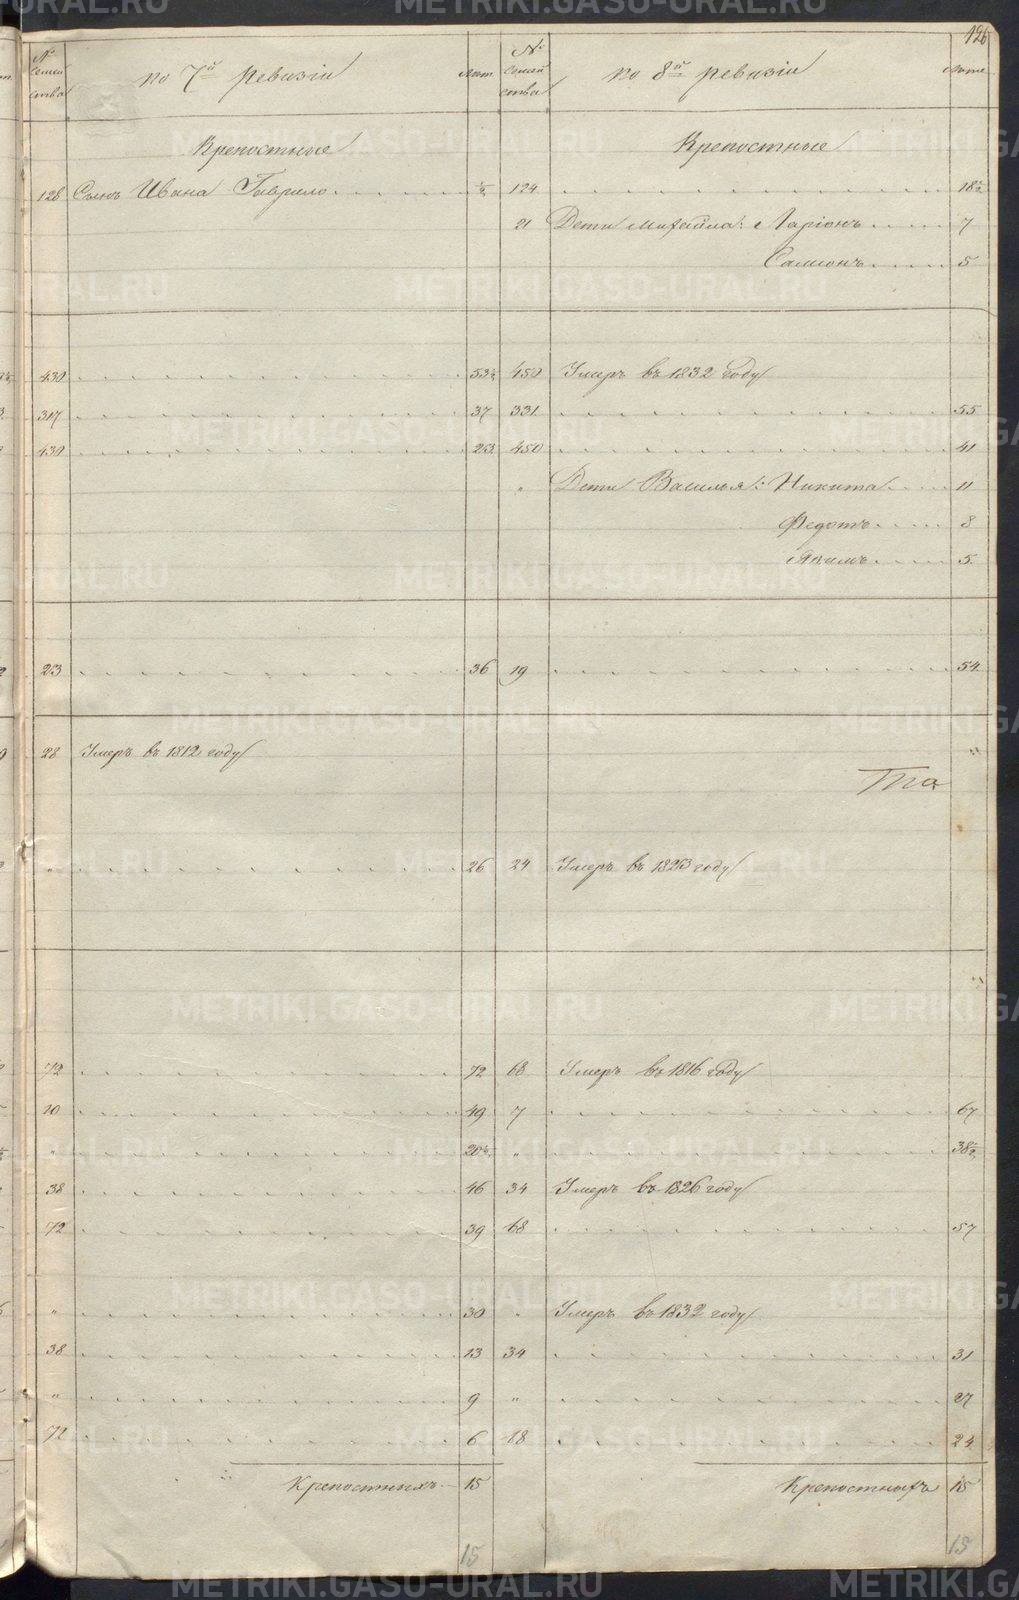 126
№ Семейства по 7й ревизіи Лета № Семейства по 8й ревизіи Лета
Крепостные Крепостные
128 Сынъ Ивана Гаврило 1/2 124 18 1/2
21 Дети Михайла: Ларіонъ 7
Самсонъ 5
430 53 1/2 450 Умеръ въ 1832 году
317 37 331 55
430 23 450 41
" Дети Василья: Никита 11
Федотъ 8
Акимъ 5
23 36 19 54
28 Умеръ въ 1812 году
" 26 24 Умеръ въ 1823 году
72 72 68 Умеръ въ 1816 году
10 49 7 67
" 20 1/2 " 38 1/2
38 46 34 Умеръ въ 1826 году
72 39 68 57
" 30 " Умеръ въ 1832 году
38 13 34 31
" 9 " 27
72 6 68 24
Крепостныхъ 15 Крепостныхъ 15
15 15
METRIKI.GASO-URAL.RU